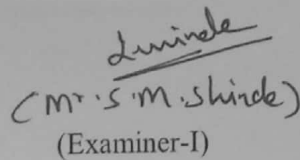 (Mr. S. M. Shinde)
(Examiner-I)